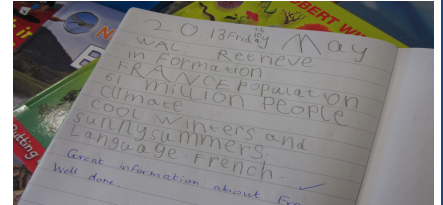 OBERT WI
2013 Friday 10th May
WAL: Retrieve
information
FRANCE Population
61 million People
climate
cool winters and
sunny summers.
Language. French.
Great information about Fra
Well done.
utting
it